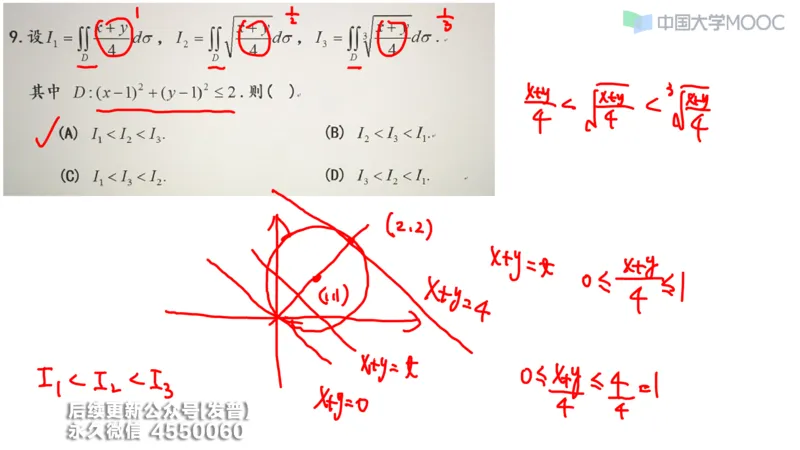 中国大学MOOC
9. 设 I₁ = ∬_D (x+y)/4 dσ, I₂ = ∬_D √((x+y)/4) dσ, I₃ = ∬_D ∛((x+y)/4) dσ.
1 1/2 1/3
其中 D:(x−1)²+(y−1)² ≤ 2. 则( )
(A) I₁ < I₂ < I₃. (B) I₂ < I₃ < I₁.
(C) I₁ < I₃ < I₂. (D) I₃ < I₂ < I₁.
(x+y)/4 < √((x+y)/4) < ∛((x+y)/4)
(2,2)
(1,1)
x+y=4
x+y=t
x+y=0
x+y=t 0≤(x+y)/4≤1
0≤(x+y)/4≤4/4=1
I₁ < I₂ < I₃
后续更新公众号(发普)
永久微信 4550060